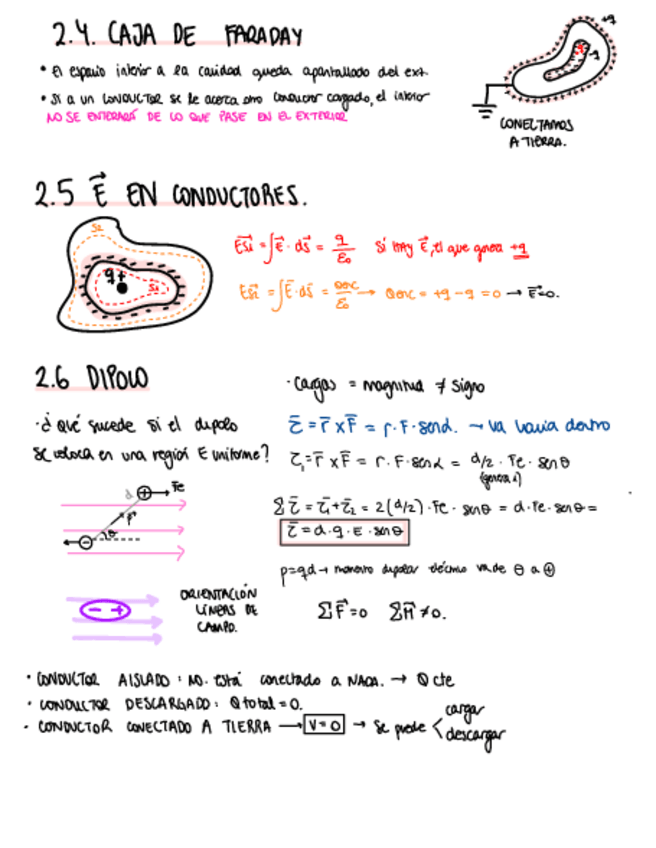 2.4. CAJA DE FARADAY
• El espacio interior a la cavidad queda apantallado del ext.
• Si a un CONDUCTOR se le acerca otro conductor cargado, el interior
NO SE ENTERARÁ DE LO QUE PASE EN EL EXTERIOR
+q
-q
CONECTAMOS
A TIERRA.
2.5 E⃗ EN CONDUCTORES.
S2
q+
S1
= ∫E⃗ · dS⃗ = q/ε₀ Si hay E⃗, el que genera +q
= ∫E⃗ · dS⃗ = Qenc/ε₀ → Qenc = +q - q = 0 → E⃗=0.
2.6 DIPOLO
· cargas = magnitud ≠ signo
· ¿Qué sucede si el dipolo
se coloca en una región E uniforme?
τ̄ = r̄ x F̄ = r · F · senα. → va hacia dentro
τ̄₁ = r̄ x F̄ = r · F · senα = d/2 · Fe · senθ
Σ τ̄ = τ̄₁ + τ̄₂ = 2(d/2) · Fe · senθ = d · Fe · senθ =
τ̄ = d · q · E · senθ
d
Fe
θ
p=qd → momento dipolar va de ⊖ a ⊕
ORIENTACIÓN
LÍNEAS DE
CAMPO.
- +
ΣF⃗=0 ΣM⃗≠0.
· CONDUCTOR AISLADO: NO. Está conectado a NADA. → Q cte
· CONDUCTOR DESCARGADO: Q total = 0.
· CONDUCTOR CONECTADO A TIERRA → V=0 → Se puede < cargar
descargar